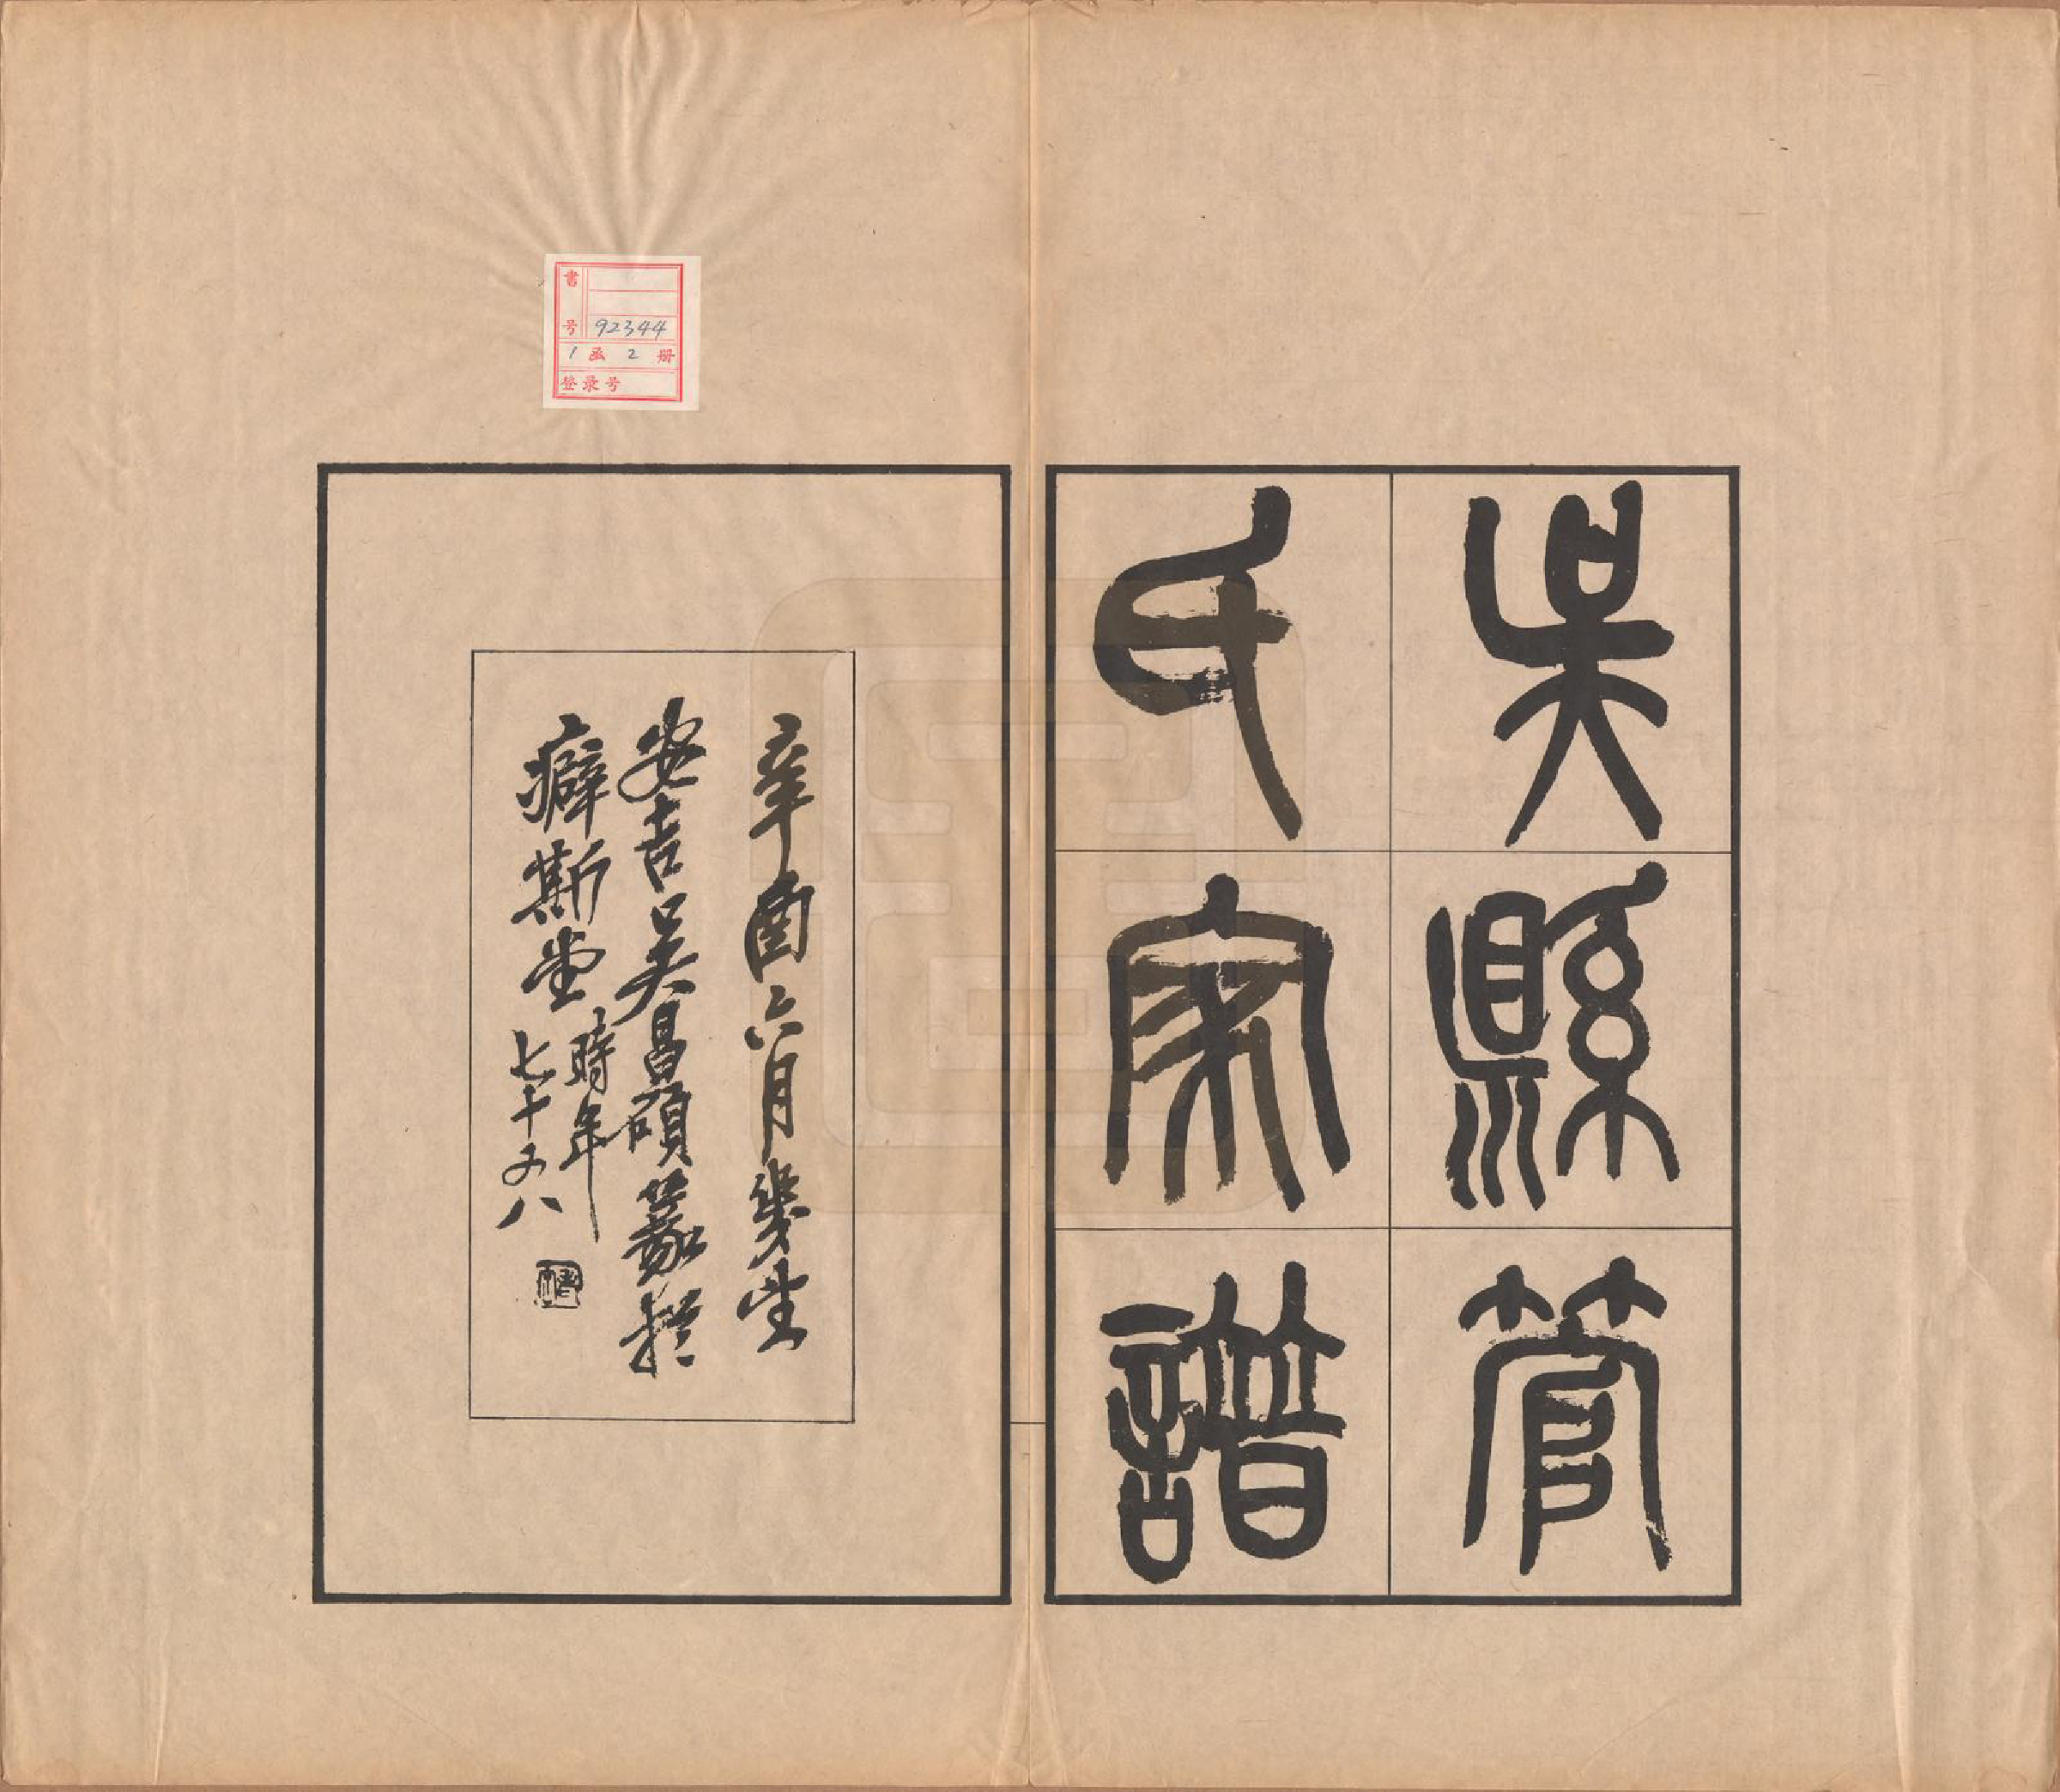 吳縣管
氏家譜
書号 92344
1 函 2 册
登录号
辛酉六月幾望
安吉吳昌碩篆於
癖斯堂時年
七十又八